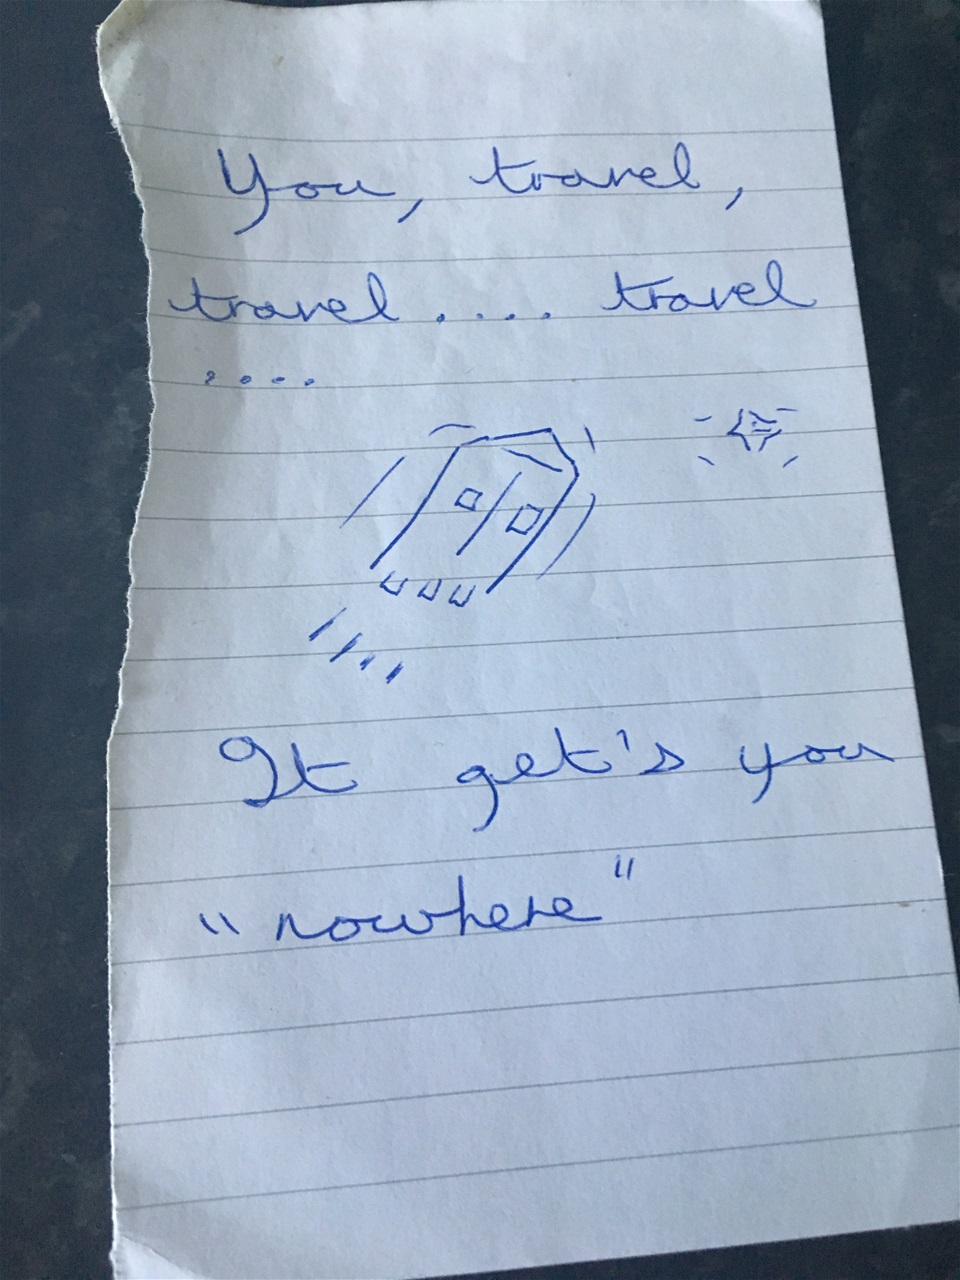 You, travel,
travel .... travel
....
It get's you
"nowhere"